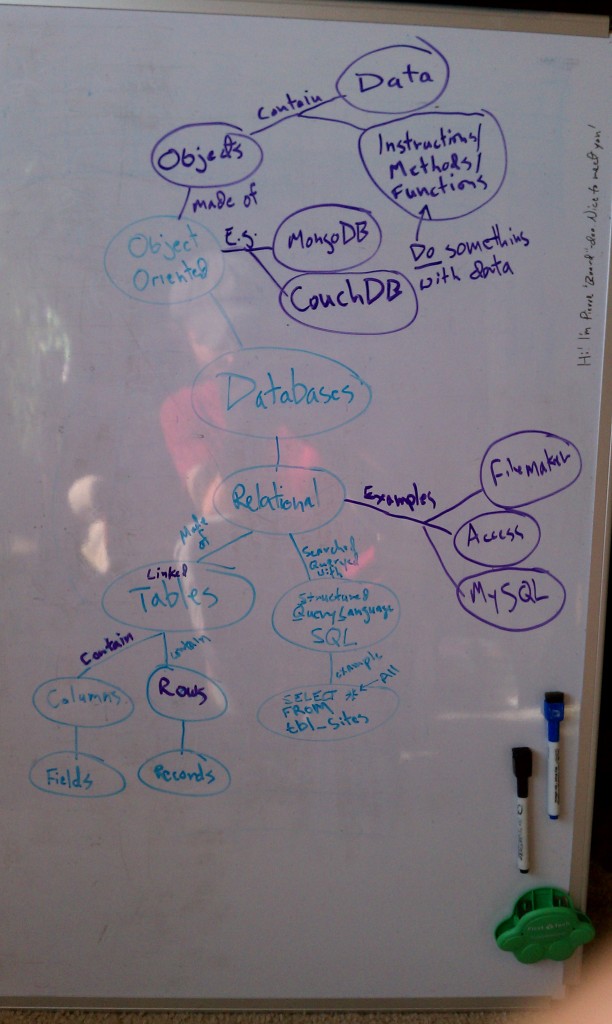 Data
Contain
Objects
Instructions/
Methods/
Functions
made of
Do something
with data
Object
Oriented
E.g.
MongoDB
CouchDB
Hi! I'm Pierre
Nice to meet you!
Databases
Relational
Examples
Filemaker
Access
MySQL
Made
of
Searched
Queried
with
Linked
Tables
Structured
Query Language
SQL
Contain
contain
example
Columns
Rows
SELECT * ← All
FROM
tbl_sites
Fields
Records